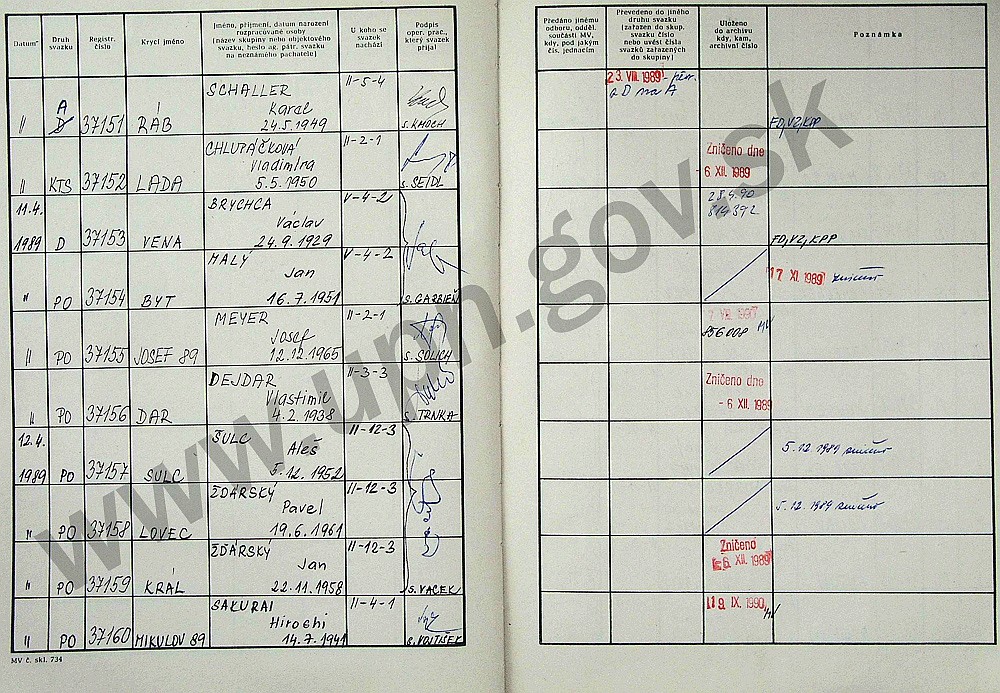 Datum*
Druh svazku
Registr. číslo
Krycí jméno
Jméno, příjmení, datum narození
rozpracované osoby
(název skupiny nebo objektového
svazku, heslo ag. pátr. svazku
na neznámého pachatele)
U koho se svazek nachází
Podpis oper. prac., který svazek přijal
Předáno jinému odboru, odděl. součásti MV, kdy, pod jakým čís. jednacím
Převedeno do jiného druhu svazku (zařazen do skup. svazku číslo nebo uvést čísla svazků zařazených do skupiny)
Uloženo do archivu kdy, kam, archivní číslo
Poznámka
SCHALLER II-5-4 23. VIII. 1989
A Karel z D na A
" D 37151 RÁB 24.5.1949 s. KMOCH FO, VZ, KPP
CHLUPÁČKOVÁ II-2-1 Zničeno dne
Vladimíra - 6 XII. 1989
" KTS 37152 LADA 5.5.1950 s. SEIDL
11.4. BRYCHCA V-4-2 28.4.90
Václav 814392
1989 D 37153 VENA 24.9.1929 FO, VZ, KPP
MALÝ V-4-2
Jan 17 XI. 1989
" PO 37154 BYT 16.7.1951 s. GARBIEŇ
MEYER II-2-1
Josef 856008
" PO 37155 JOSEF 89 12.12.1965 s. SOLICH
DEJDAR II-3-3 Zničeno dne
Vlastimil - 6 XII. 1989
" PO 37156 DAR 4.2.1938 s. TRNKA
12.4. ŠULC II-12-3
Aleš 5.12.1989
1989 PO 37157 SULC 5.12.1952
ŽĎÁRSKÝ II-12-3
Pavel 5.12.1989
" PO 37158 LOVEC 19.6.1961
ŽĎÁRSKÝ II-12-3 Zničeno
Jan 6. XII. 1989
" PO 37159 KRÁL 22.11.1958 s. VACEK
SAKURAI II-4-1 19. IX. 1990
Hirochi
" PO 37160 MIKULOV 89 14.7.1941 s. VOJTÍŠEK
MV č. skl. 734
www.upn.gov.sk